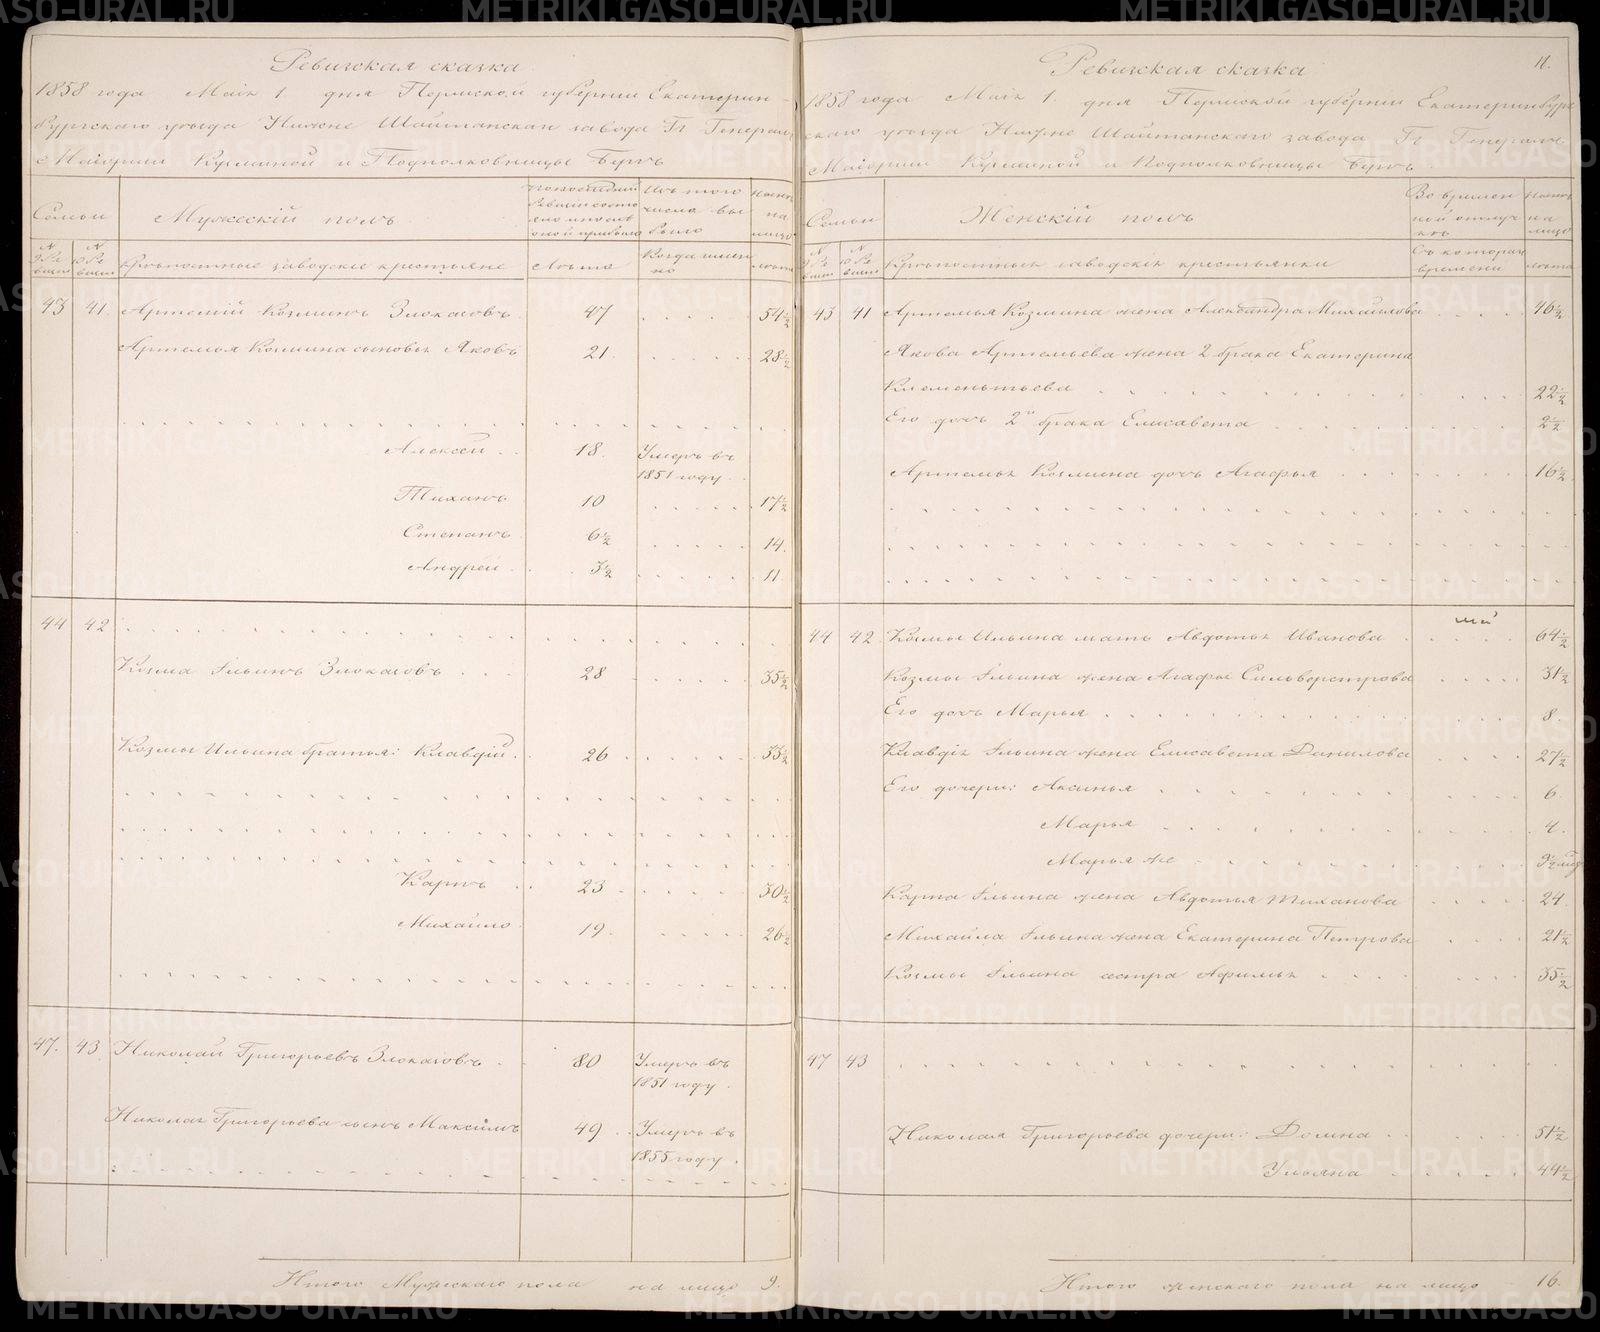 Ревизкая сказка
1858 года Маія 1 дня Пермской губерніи Екатерин-
бургскаго уѣзда Нижне Шайтанскаи завода Гг Генералъ
Маіорши Кузминой и Подполковницы Бутъ
Семьи
Мужескій полъ
Изъ того числа выбыло
Нынѣ на лицо
№ 9 Ревизіи
№ 10 Ревизіи
Крѣпостные заводскіе крестьяне
Лѣта
Когда именно
лѣта
43 41 Артемій Козминъ Злоказовъ 47 54½
Артемья Козмина сыновья Яковъ 21. 28½
Алексѣй 18. Умеръ въ
1851 году
Тиханъ 10 17½
Степанъ 6½ 14.
Андрей 3½ 11
44 42
Козма Ильинъ Злоказовъ 28 35½
Козмы Ильина братья: Клавдій 26 33½
Карпъ 23 30½
Михайло 19. 26½
47. 43 Николай Григорьевъ Злоказовъ 80 Умеръ въ
1851 году
Николая Григорьева сынъ Максимъ 49 Умеръ въ
1855 году
Итого Мужскаго пола на лицо 9.
11.
Ревизкая сказка
1858 года Маія 1. дня Пермской губерніи Екатеринбург
скаго уѣзда Нижне Шайтанскаго завода Гг Генералъ
Маіорши Кузминой и Подполковницы Бутъ
Семьи
Женскій полъ
Во временной отлучкѣ
Нынѣ на лицо
№ 9 Ревизіи
№ 10 Ревизіи
Крѣпостныя заводскія крестьянки
Съ котораго времени
лѣта
43 41 Артемья Козмина жена Александра Михайлова 46½
Якова Артемьева жена 2 брака Екатерина
Клементьева 22½
Его дочь 2го брака Елисавета 2½
Артемья Козмина дочь Агафья 16½
44 42 Козмы Ильина мать Авдотья Иванова 64½
Козмы Ильина жена Агафья Сильверстрова 31½
Его дочь Марья 8.
Клавдія Ильина жена Елисавета Данилова 27½
Его дочери: Аксинья 6.
Марья 4.
Марья же
Карпа Ильина жена Авдотья Тиханова 24
Михайла Ильина жена Екатерина Петрова 21½
Козмы Ильина сестра Афимья 35½
47 43
Николая Григорьева дочери: Домна 51½
Ульяна 44½
Итого женскаго пола на лицо 16.
METRIKI.GASO-URAL.RU